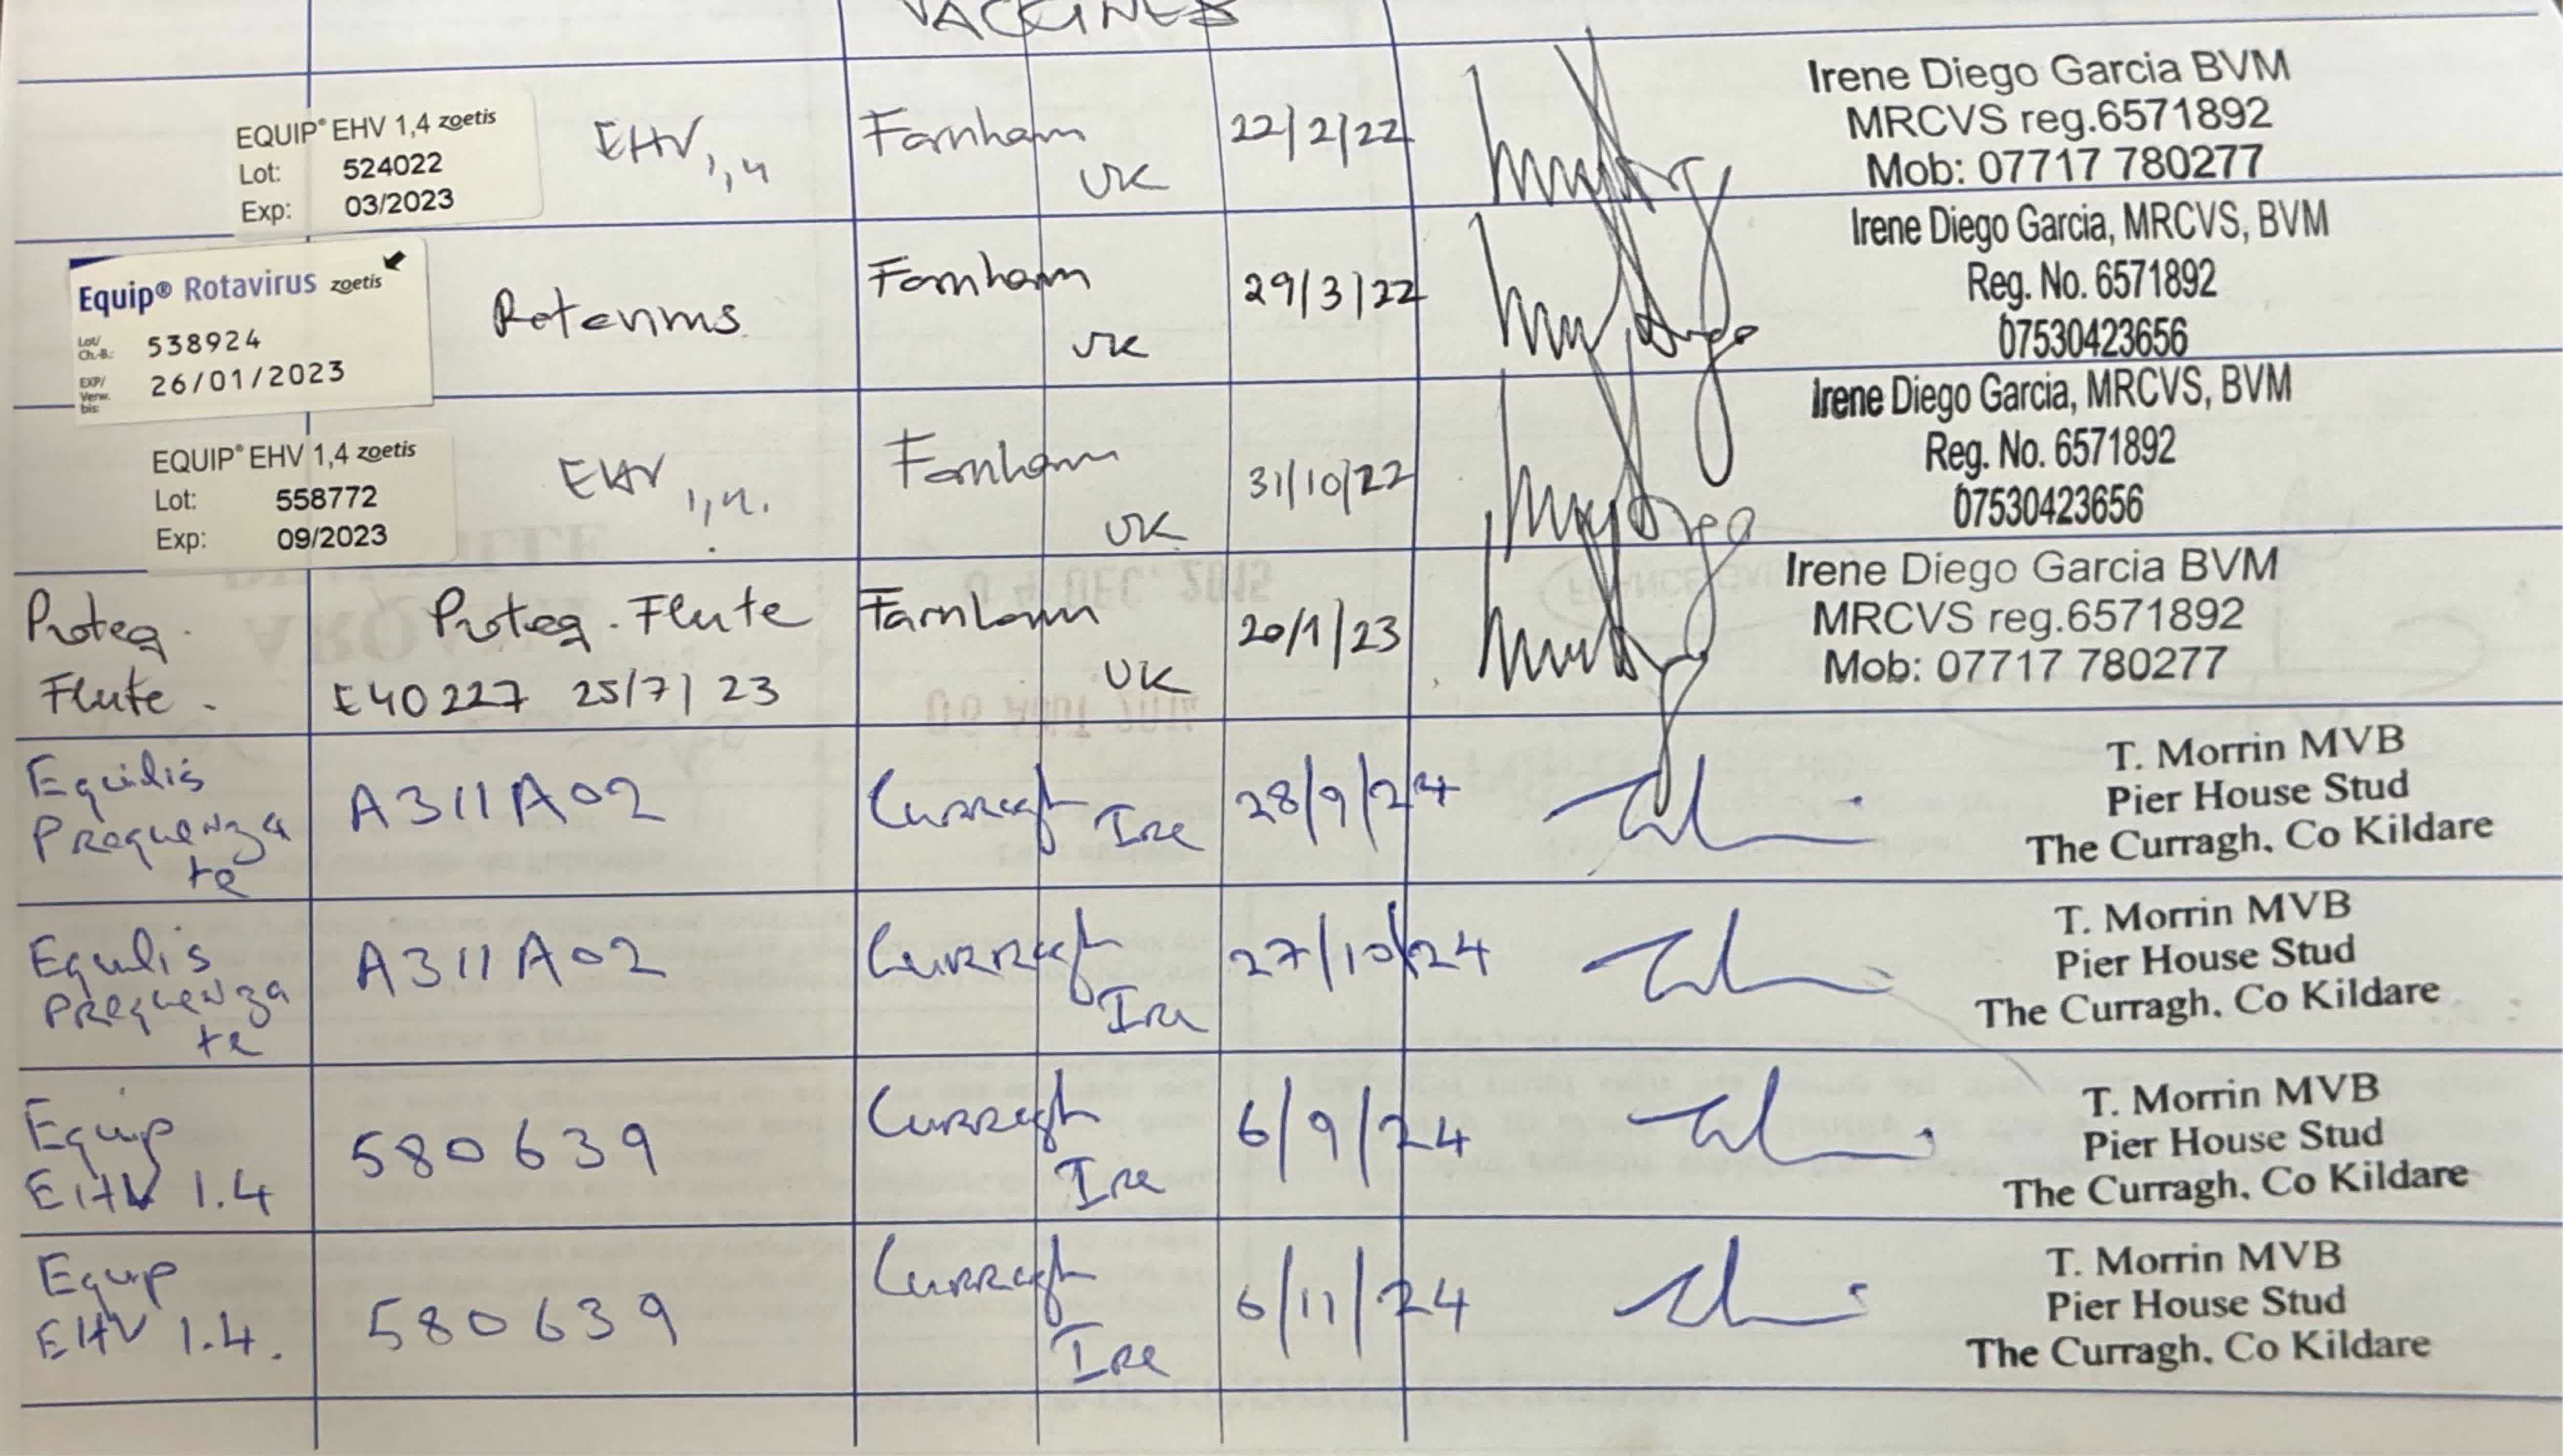 VACCINES
EQUIP® EHV 1,4 zoetis
Lot: 524022
Exp: 03/2023
EHV 1,4
Farnham
UK
22/2/22
Irene Diego Garcia BVM
MRCVS reg.6571892
Mob: 07717 780277
Equip® Rotavirus zoetis
Lot/
Ch.-B.: 538924
EXP/
Verw.
bis: 26/01/2023
Rotavirus
Farnham
UK
29/3/22
Irene Diego Garcia, MRCVS, BVM
Reg. No. 6571892
07530423656
EQUIP® EHV 1,4 zoetis
Lot: 558772
Exp: 09/2023
EHV 1,4.
Farnham
UK
31/10/22
Irene Diego Garcia, MRCVS, BVM
Reg. No. 6571892
07530423656
Proteq.
Flute.
Proteq. Flute
E40227 25/7/23
Farnham
UK
20/1/23
Irene Diego Garcia BVM
MRCVS reg.6571892
Mob: 07717 780277
Equilis
Prequenza
te
A311A02
Curragh
Ire
28/9/24
T. Morrin MVB
Pier House Stud
The Curragh, Co Kildare
Equilis
Prequenza
te
A311A02
Curragh
Ire
27/10/24
T. Morrin MVB
Pier House Stud
The Curragh, Co Kildare
Equip
EHV 1.4
580639
Curragh
Ire
6/9/24
T. Morrin MVB
Pier House Stud
The Curragh, Co Kildare
Equip
EHV 1.4.
580639
Curragh
Ire
6/11/24
T. Morrin MVB
Pier House Stud
The Curragh, Co Kildare